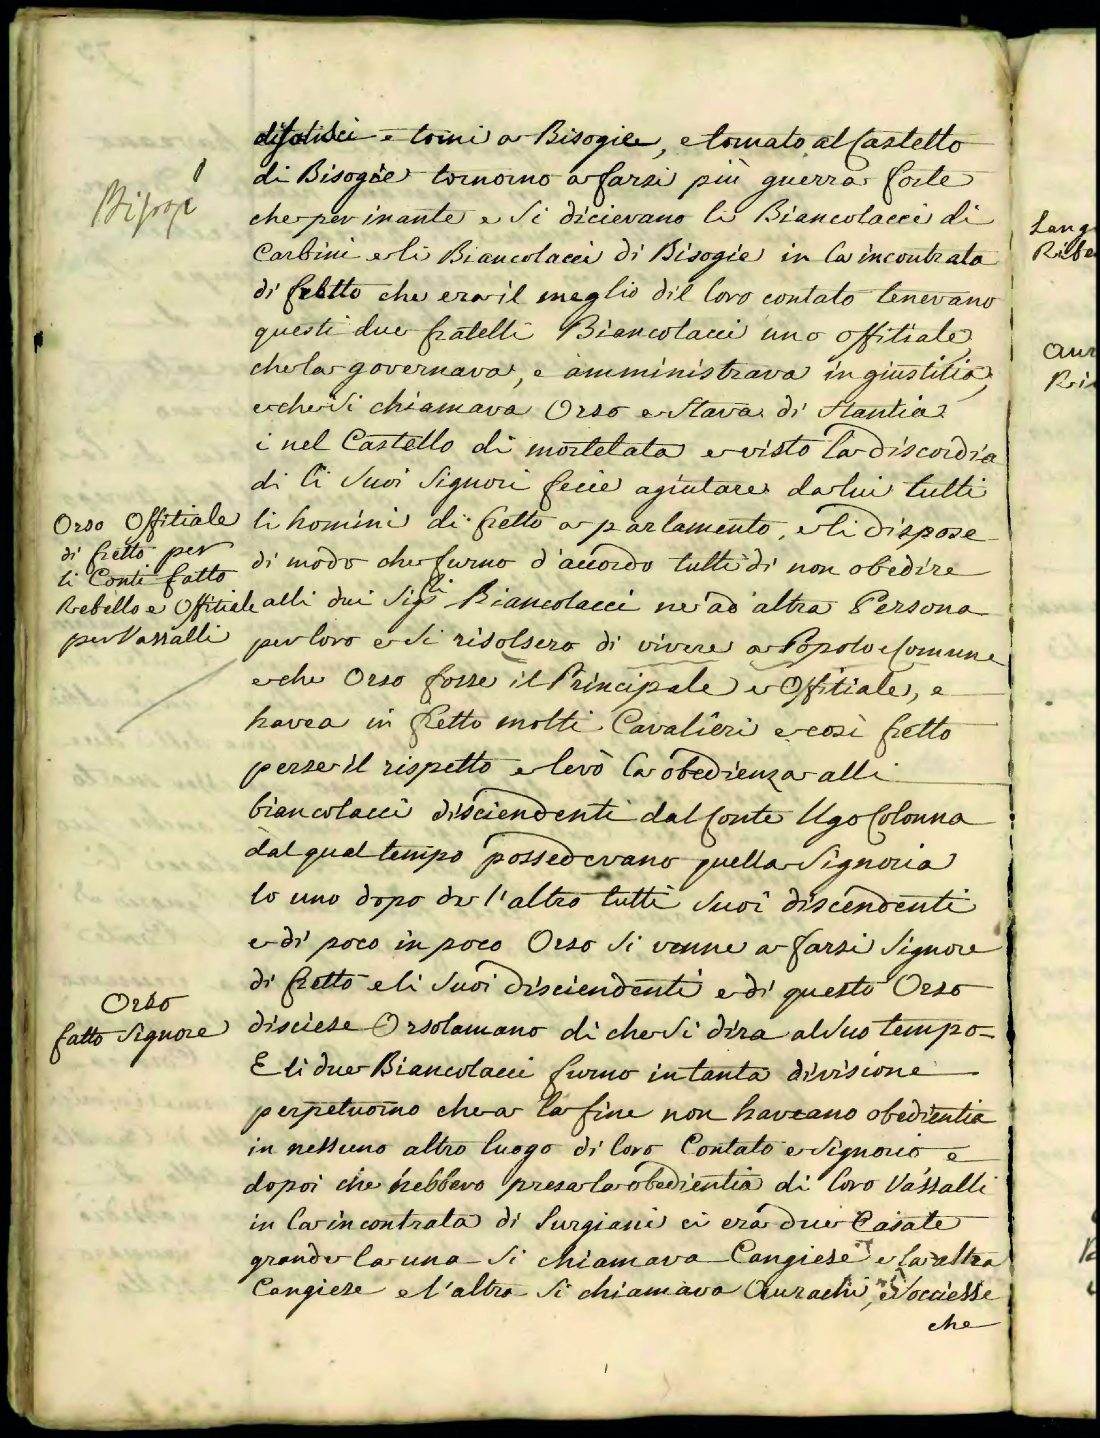 e torni a Bisogie, e tornato al Castello
di Bisogie tornorno a farsi più guerra forte
che per inante e si dicievano li Biancolacci di
Carbini e li Biancolacci di Bisogie in la incontrata
di fretto che era il meglio dil loro contato tenevano
questi due fratelli Biancolacci uno offitiale
che la governava, e amministrava in giustitia,
e che si chiamava Orso e stava di stantia
i nel Castello di mortelata e visto la discordia
di li suoi signori fecie agiutare da lui tutti
li homini di fretto a parlamento, e li dispose
di modo che furno d'accordo tutti di non obedire
alli dui Sig.ri Biancolacci ne ad altra Persona
per loro e si risolsero di vivere a Popolo e Comune
e che Orso fosse il Principale e Offitiale, e
havea in fretto molti Cavalieri e così fretto
perse il rispetto e levò la obedienza alli
biancolacci disciendenti dal Conte Ugo Colonna
dal qual tempo possedevano quella Signoria
lo uno dopo de l'altro tutti suoi discendenti
e di poco in poco Orso si venne a farsi Signore
di fretto e li suoi disciendenti e di questo Orso
disciese Orsolamano di che si dira al suo tempo
E li due Biancolacci furno in tanta divisione
perpetuorno che a la fine non haveano obedientia
in nessuno altro luogo di loro Contato e Signorio e
dopoi che hebbero presa la obedientia di loro Vassalli
in la incontrata di Surgiani ci era due Casate
grande la una si chiamava Cangiese e la altra
Cangiese e l'altra si chiamava Aurachi,
che
Bisogi
Orso Offitiale
di fretto per
li Conti fatto
Rebello e Offitiale
per Vassalli
Orso
fatto Signore